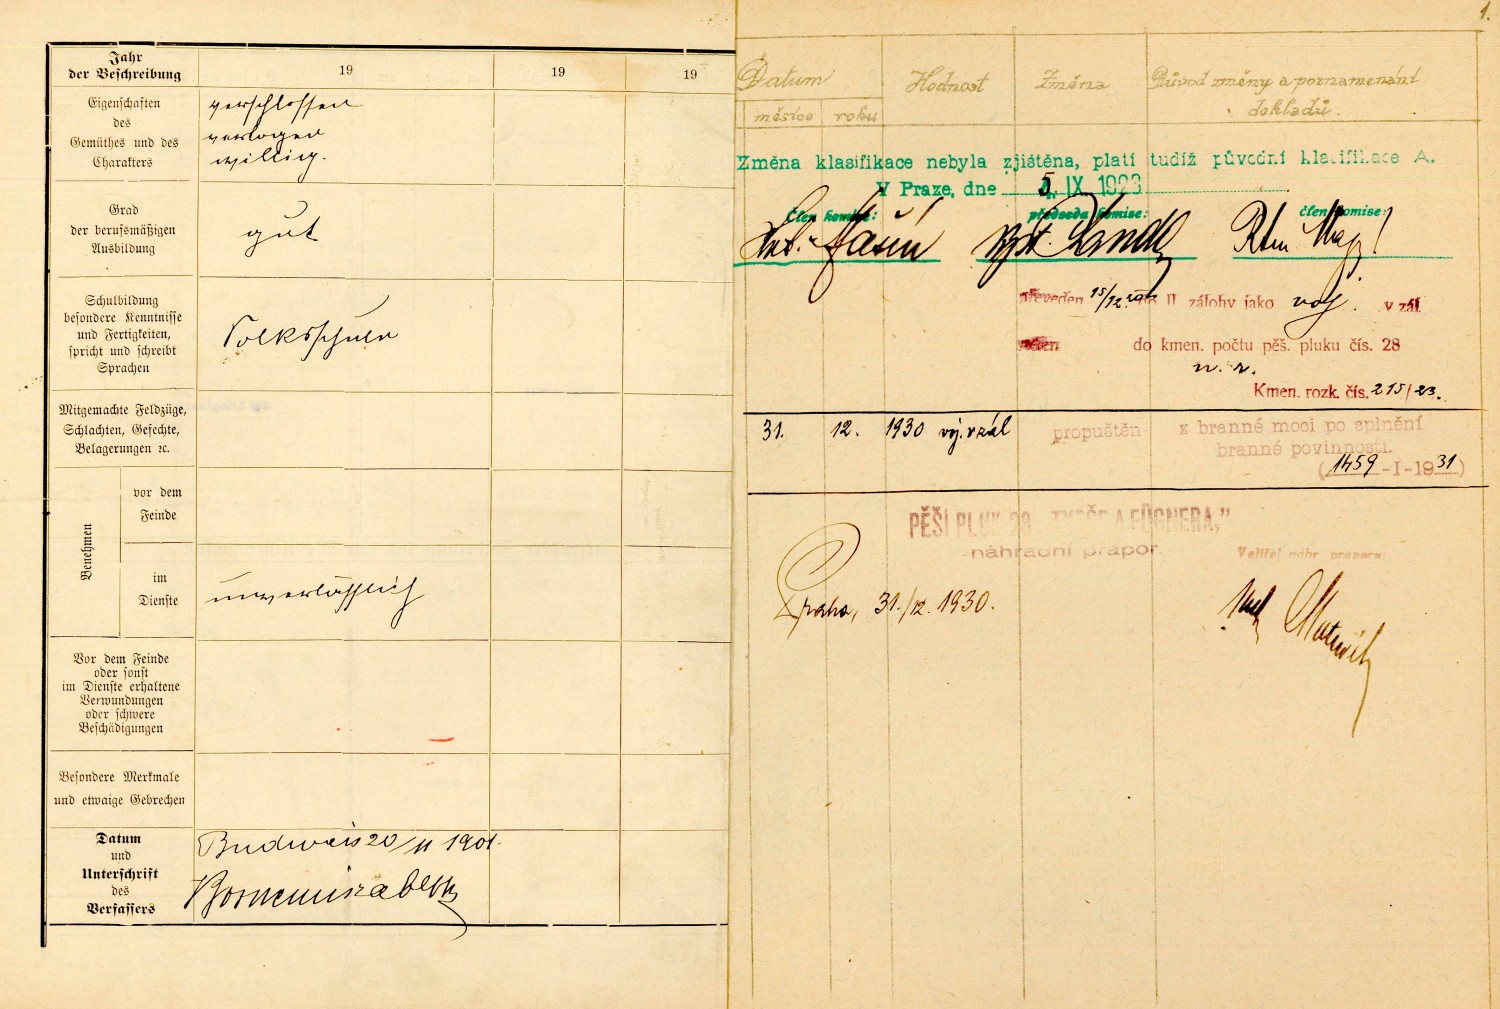 Jahr
der Beschreibung
19
19
19
Eigenschaften
des
Gemüthes und des
Charakters
verschlossen
verlogen
willig.
Grad
der berufsmäßigen
Ausbildung
gut
Schulbildung
besondere Kenntnisse
und Fertigkeiten,
spricht und schreibt
Sprachen
Volksschule
Mitgemachte Feldzüge,
Schlachten, Gefechte,
Belagerungen ꝛc.
Benehmen
vor dem
Feinde
im
Dienste
unverläßlich
Vor dem Feinde
oder sonst
im Dienste erhaltene
Verwundungen
oder schwere
Beschädigungen
Besondere Merkmale
und etwaige Gebrechen
Datum
und
Unterschrift
des
Verfassers
Budweis 20/11 1901.
1.
Datum
Hodnost
Změna
Důvod změny a poznamenání
dokladů.
měsíce
roku
Změna klasifikace nebyla zjištěna, platí tudíž původní klasifikace A.
V Praze, dne 5. IX. 1923
člen komise:
předseda komise:
člen komise:
převeden 15/12. do II zálohy jako voj. v zál.
do kmen. počtu pěš. pluku čís. 28
n. r.
Kmen. rozk. čís. 215/23.
31. 12. 1930 voj. v zál propuštěn z branné moci po splnění
branné povinnosti.
(1459-I-1931)
PĚŠÍ PLUK 28 „TYRŠE A FÜGNERA,"
náhradní prapor.
Velitel náhr. praporu:
Praha, 31./12. 1930.